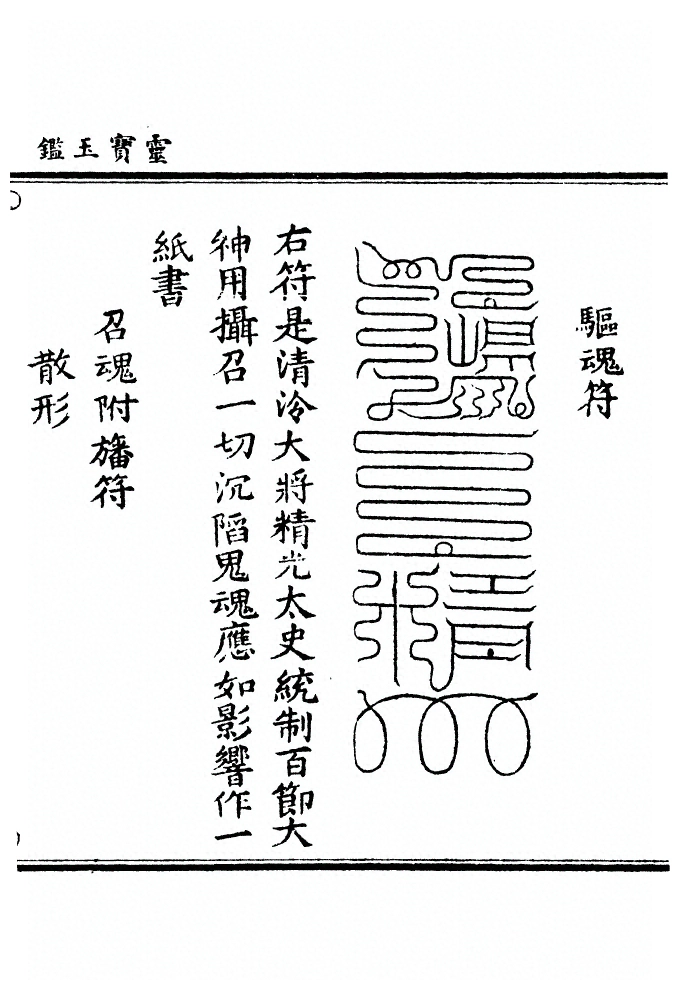 靈寶玉鑑
驅魂符
右符是清泠大將精光太史統制百節大
神用攝召一切沉陷鬼魂應如影響作一
紙書
召魂附旛符
散形